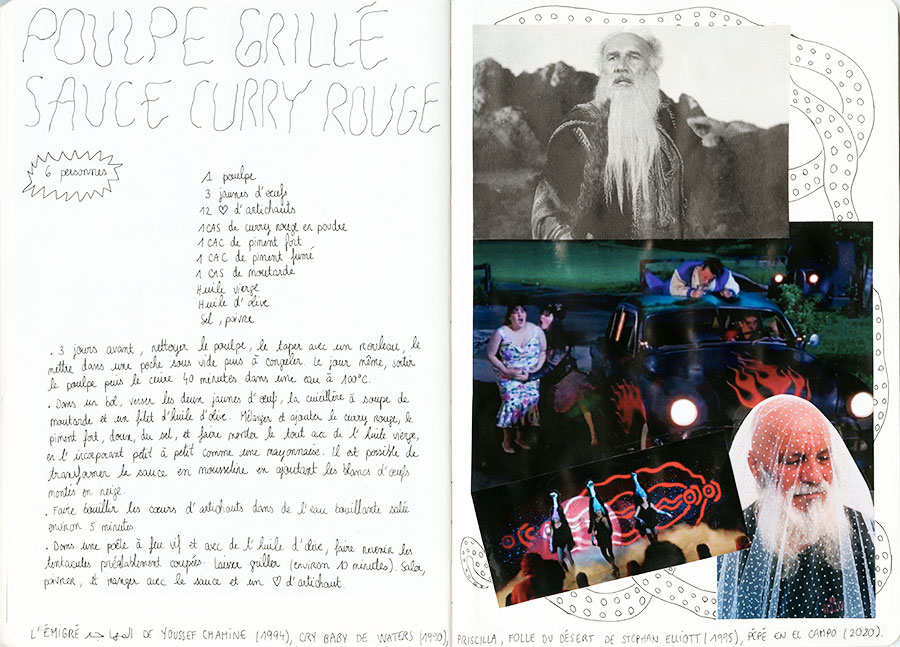 POULPE GRILLÉ
SAUCE CURRY ROUGE
6 personnes
1 poulpe
3 jaunes d'œufs
12 ♡ d'artichauts
1 CAS de curry rouge en poudre
1 CAC de piment fort
1 CAC de piment fumé
1 CAS de moutarde
Huile vierge
Huile d'olive
Sel, poivre
. 3 jours avant, nettoyer le poulpe, le taper avec un rouleau, le
mettre dans une poche sous vide puis à congeler. Le jour même, sortir
le poulpe puis le cuire 40 minutes dans une eau à 100°C.
. Dans un bol, verser les deux jaunes d'œuf, la cuillère à soupe de
moutarde et un filet d'huile d'olive. Mélanger et ajouter le curry rouge, le
piment fort, doux, du sel, et faire monter le tout avec de l'huile vierge,
en l'incorporant petit à petit comme une mayonnaise. Il est possible de
transformer la sauce en mousseline en ajoutant les blancs d'œufs
montés en neige.
. Faire bouillir les cœurs d'artichauts dans de l'eau bouillante salée
environ 5 minutes.
. Dans une poêle à feu vif et avec de l'huile d'olive, faire revenir les
tentacules préalablement coupées. Laisser griller (environ 10 minutes). Saler,
poivrer, et manger avec la sauce et un ♡ d'artichaut.
L'ÉMIGRÉ المهاجر DE YOUSSEF CHAHINE (1994), CRY BABY DE WATERS (1990), PRISCILLA, FOLLE DU DÉSERT DE STEPHAN ELLIOTT (1995), PÉPÉ EN EL CAMPO (2020).